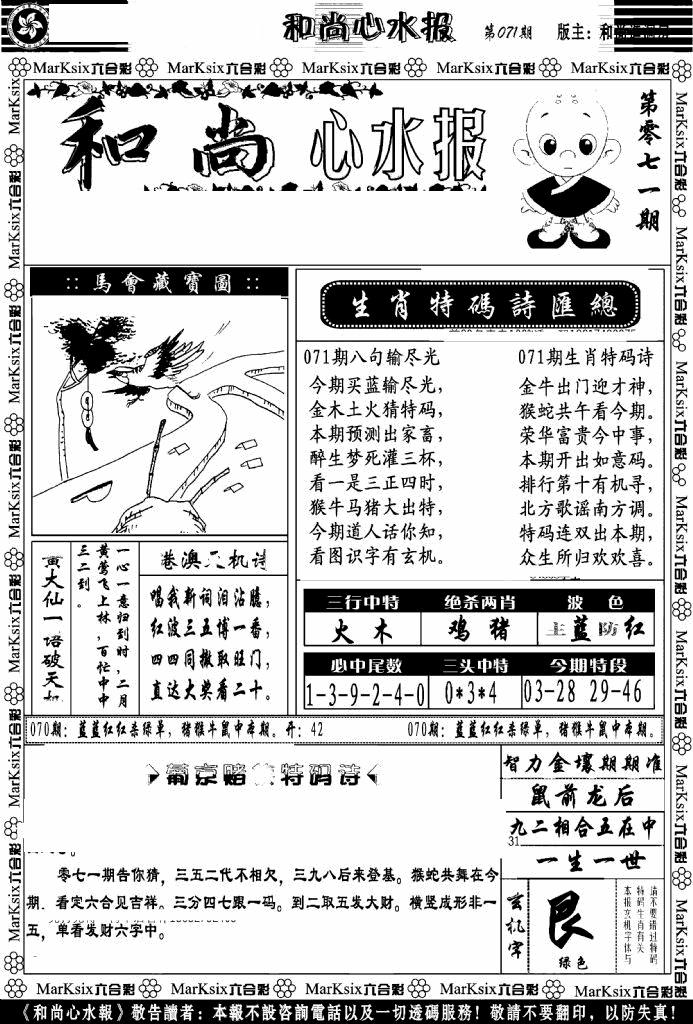 和尚心水报
第071期
版主：和尚
MarKsix六合彩 MarKsix六合彩 MarKsix六合彩 MarKsix六合彩 MarKsix六合彩
和尚心水报
第零七一期
::馬會藏寶圖::
生肖特碼詩匯總
071期八句输尽光
今期买蓝输尽光，
金木土火猜特码，
本期预测出家畜，
醉生梦死灌三杯，
看一是三正四时，
猴牛马猪大出特，
今期道人话你知，
看图识字有玄机。
071期生肖特码诗
金牛出门迎才神，
猴蛇共午看今期。
荣华富贵今中事，
本期开出如意码。
排行第十有机寻，
北方歌谣南方调。
特码连双出本期，
众生所归欢欢喜。
黄大仙一语破天机
一心一意归到时，二月
黄莺飞上林，百忙中中
三二到。
港澳天机诗
唱我新词泪沾臆，
红波三五博一番，
四四同撤取旺门，
直达大奖看二十。
三行中特 绝杀两肖 波色
火木 鸡猪 主蓝防红
必中尾数 三头中特 今期特段
1-3-9-2-4-0 0*3*4 03-28 29-46
070期：蓝蓝红红杀绿单，猪猴牛鼠中本期。开：42
070期：蓝蓝红红杀绿单，猪猴牛鼠中本期。
葡京赌 特码诗
零七一期告你猜，三五二代不相欠，三九八后来登基。猴蛇共舞在今
期．看定六合见吉祥。三分四七跟一码。到二取五发大财。横竖成形非一
五，单看发财六字中。
智力金壤期期准
鼠前龙后
九二相合五在中
31
一生一世
玄机字
艮
绿色
请不要错过特码
特码生肖有关
本报玄机字体与
MarKsix六合彩 MarKsix六合彩 MarKsix六合彩 MarKsix六合彩 MarKsix六合彩
《和尚心水報》敬告讀者：本報不設咨詢電話以及一切透碼服務！敬請不要翻印，以防失真！